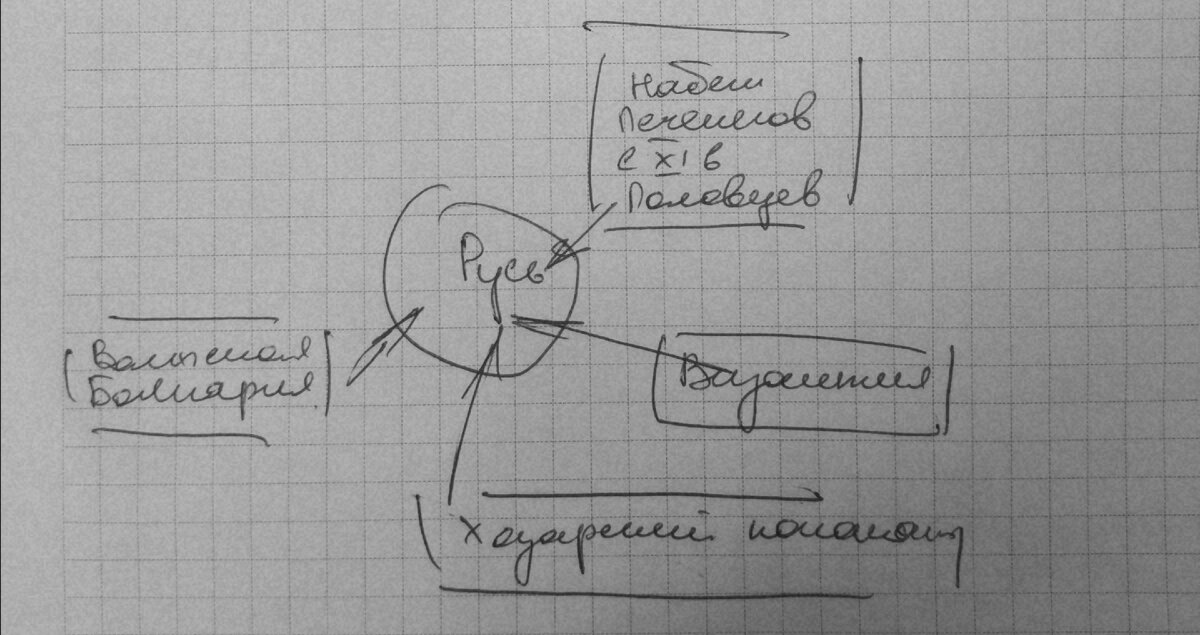 Набеги
Печенегов
с XI в
Половцев
Русь
Волжская
Болгария
Византия
Хазарский каганат